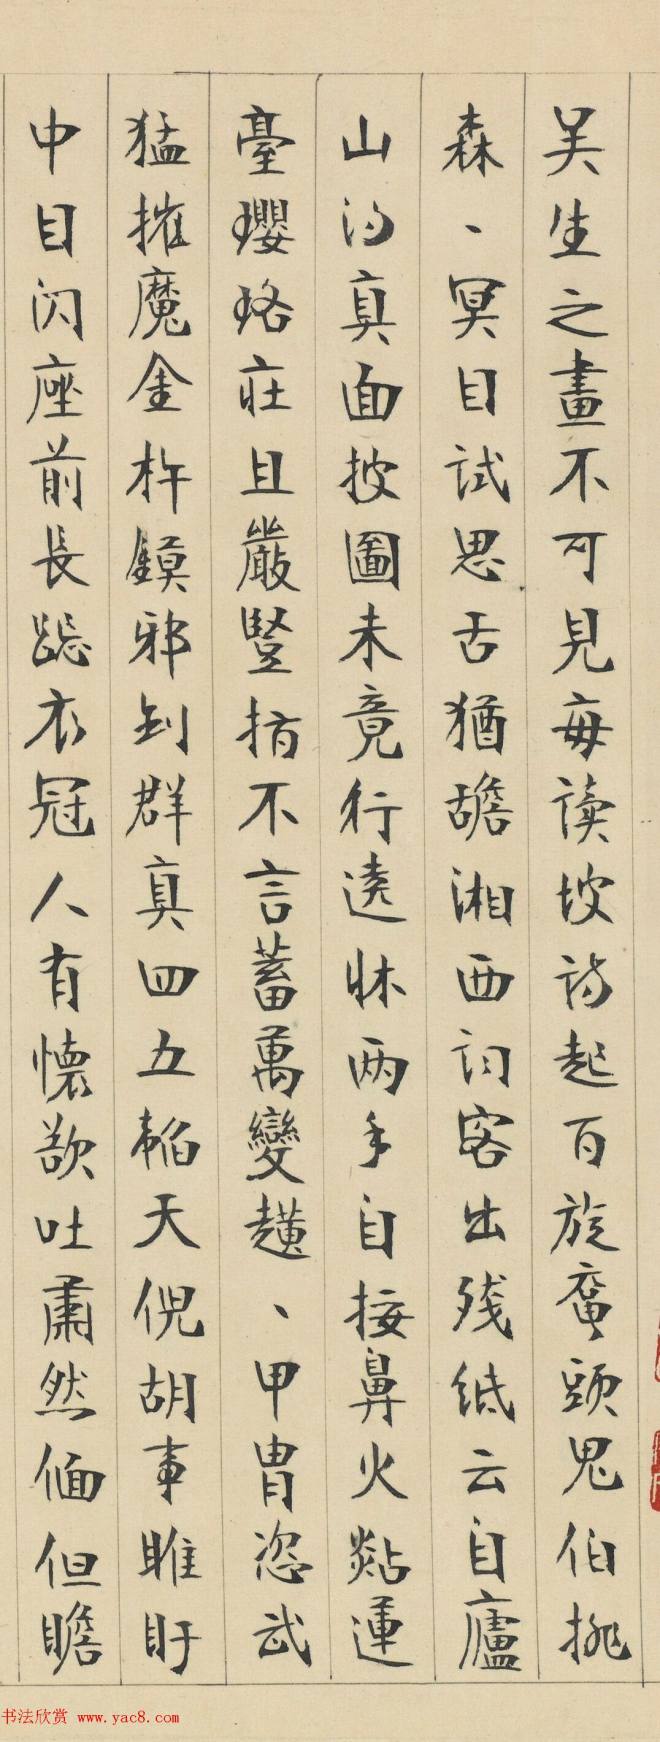 吴生之畫不可見每读坡诗起百旋奮頭鬼伯挑
森、冥目試思舌猶䑛湘西詞客出残紙云自廬
山得真面披圖未竟行遶牀两手自接鼻火㸃蓮
臺瓔珞莊且嚴豎指不言蓄萬變趪、甲胄恣武
猛摧魔金杵鏌邪到群真四五韜天倪胡事睢盱
中目闪座前長跽衣冠人有懷欲吐肅然偭但瞻
书法欣赏 www.yac8.com